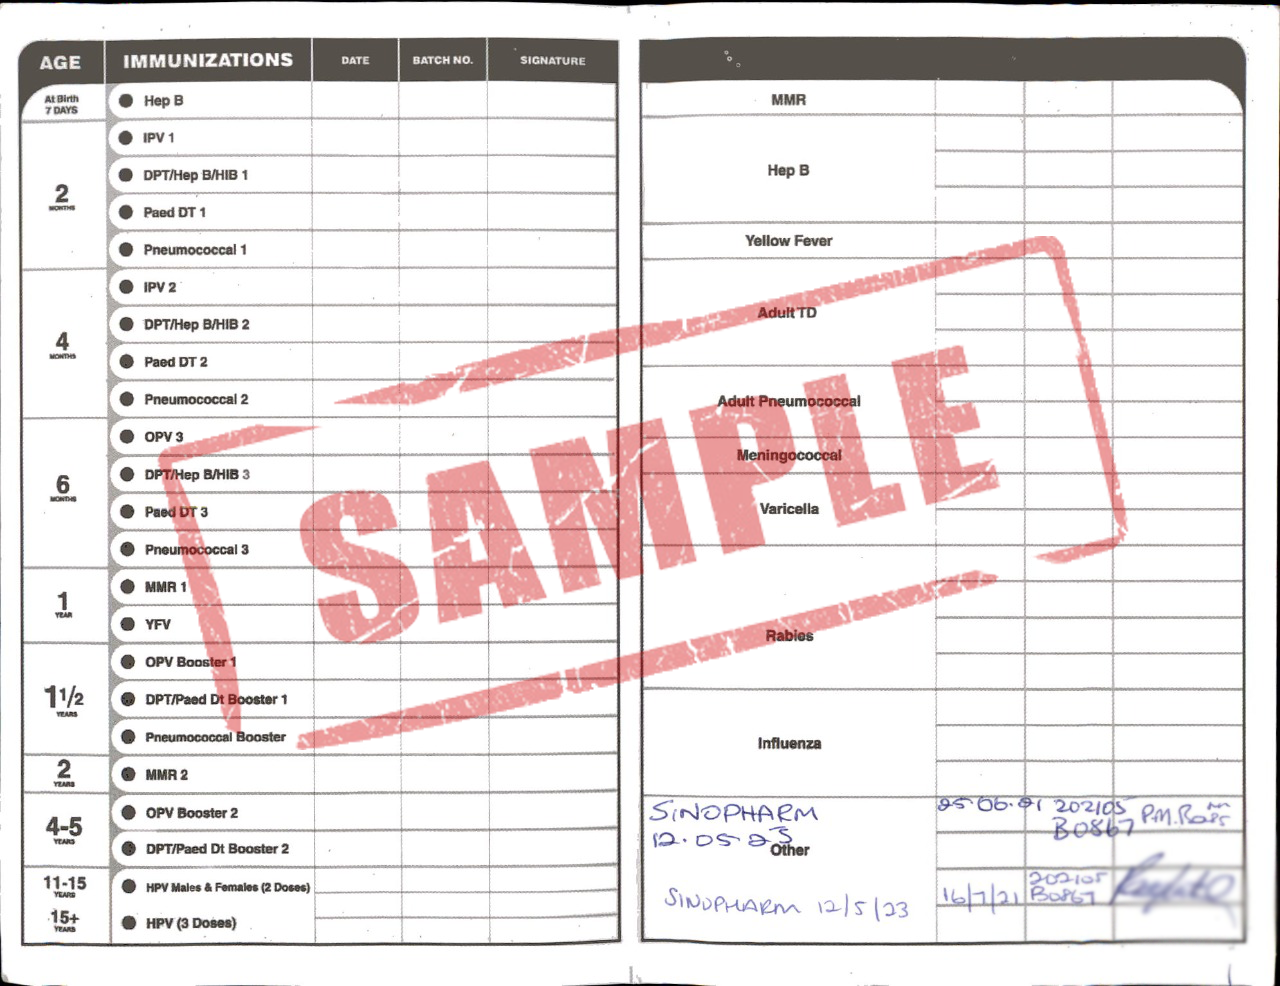 AGE IMMUNIZATIONS DATE BATCH NO. SIGNATURE
At Birth
7 DAYS
Hep B
2
MONTHS
IPV 1
DPT/Hep B/HIB 1
Paed DT 1
Pneumococcal 1
4
MONTHS
IPV 2
DPT/Hep B/HIB 2
Paed DT 2
Pneumococcal 2
6
MONTHS
OPV 3
DPT/Hep B/HIB 3
Paed DT 3
Pneumococcal 3
1
YEAR
MMR 1
YFV
1 1/2
YEARS
OPV Booster 1
DPT/Paed Dt Booster 1
Pneumococcal Booster
2
YEARS
MMR 2
4-5
YEARS
OPV Booster 2
DPT/Paed Dt Booster 2
11-15
YEARS
HPV Males & Females (2 Doses)
15+
YEARS
HPV (3 Doses)
MMR
Hep B
Yellow Fever
Adult TD
Adult Pneumococcal
Meningococcal
Varicella
Rabies
Influenza
Other
SINOPHARM 25.06.21 202105
12.05.23 B0867
SINOPHARM 12/5/23 16/7/21 202105
B0867
SAMPLE